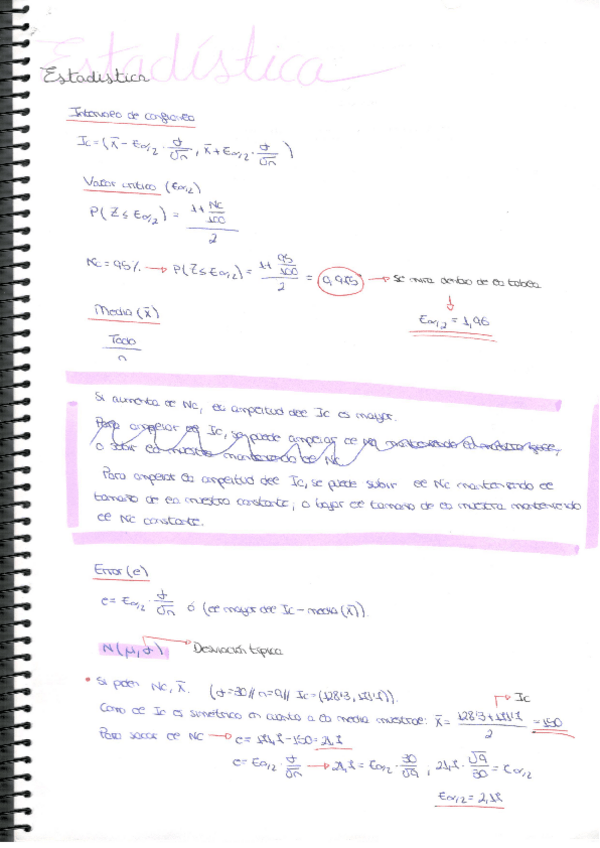 Estadística
Estadística
Intervalo de confianza
Ic = (x̄ - Zα/2 · σ/√n , x̄ + Zα/2 · σ/√n)
Valor crítico (Zα/2)
P(Z ≤ Zα/2) = (1 + Nc/100)/2
Nc = 95% → P(Z ≤ Zα/2) = (1 + 95/100)/2 = 0,975 → Se mira dentro de la tabla
↓
Zα/2 = 1,96
Media (x̄)
Todo/n
Si aumenta el Nc, la amplitud del Ic es mayor.
Para ampliar el Ic, se puede ampliar el
o subir la muestra manteniendo el Nc
Para ampliar la amplitud del Ic, se puede subir el Nc manteniendo el
tamaño de la muestra constante, o bajar el tamaño de la muestra manteniendo
el Nc constante.
Error (e)
e = Zα/2 · σ/√n ó (el mayor del Ic - media (x̄)).
N(μ, σ) → Desviación típica
• Si piden Nc, x̄. (σ=30 // n=9 // Ic=(128'3, 171'7)).
→ Ic
Como el Ic es simétrico en cuanto a la media muestral: x̄ = (128'3 + 171'7)/2 = 150
Para sacar el Nc → e = 171,7 - 150 = 21,7
e = Zα/2 · σ/√n → 21,7 = Zα/2 · 30/√9 ; 21,7 · √9/30 = Zα/2
Zα/2 = 2,17